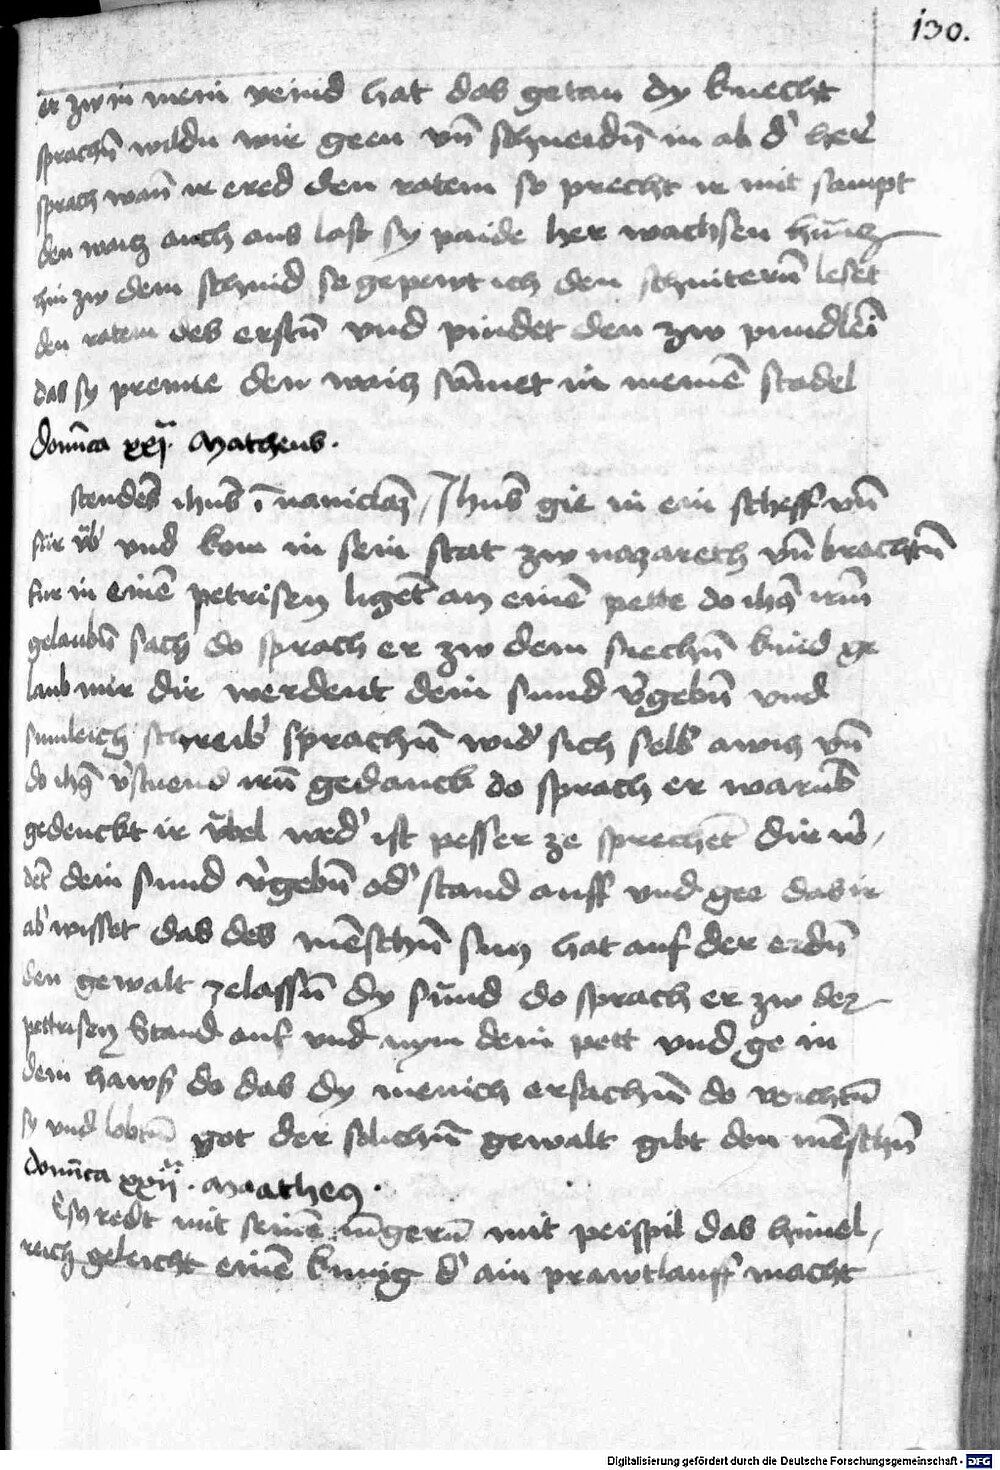 130.
er zw in mein veind hat das getan dy knecht
sprachn̄ wildu wir geen vn̄ schneidn̄ in ab d' her'
sprach wan̄ ir ered den ratem so precht ir mit sampt
den waicz auch aus last sy paide her wachsen hūncz
hin zw dem schnid se gepewt ich den schnitern̄ leset
den ratem des erstn̄ vnd pindet den zw pundlein̄
das sy prenne den waicz sāmet in meinē stadel
domīca xxij. Matheus.
ihus gie in ein scheff vn̄
fur vb' vnd kom in sein stat zw nazareth vn̄ brachtn̄
fur in einē petrisen ligēt an einē pette do ihs irn̄
gelaubn̄ sach do sprach er zw dem siechn̄ kind ge
laub mir dir werdent dein sund v'gebn̄ vnd
sumleich schreib' sprachn̄ wid' sich selb'
do ihs v'stuend irn̄ gedanck do sprach er warūb
gedenckt ir vbel wed' ist pesser ze sprechēt dir w'
dēt dein sund v'gebn̄ od' stand auff vnd gee das ir
ab' wisset das des mēschn̄ sun hat auf der erdn̄
den gewalt zelassn̄ dy sund do sprach er zw der
pettrisen Stand auf vnd nym dein pett vnd ge in
dein haws do das dy menich ersachn̄ do vorchtn̄
sy vnd lobtn̄ got der solichn̄ gewalt gibt den mēschn̄
domīca xxiij. Matheus.
Er redt mit seinē iūgern̄ mit peispil das himel
reich geleicht einē kunig d' ain prawtlauff macht
Digitalisierung gefördert durch die Deutsche Forschungsgemeinschaft - DFG